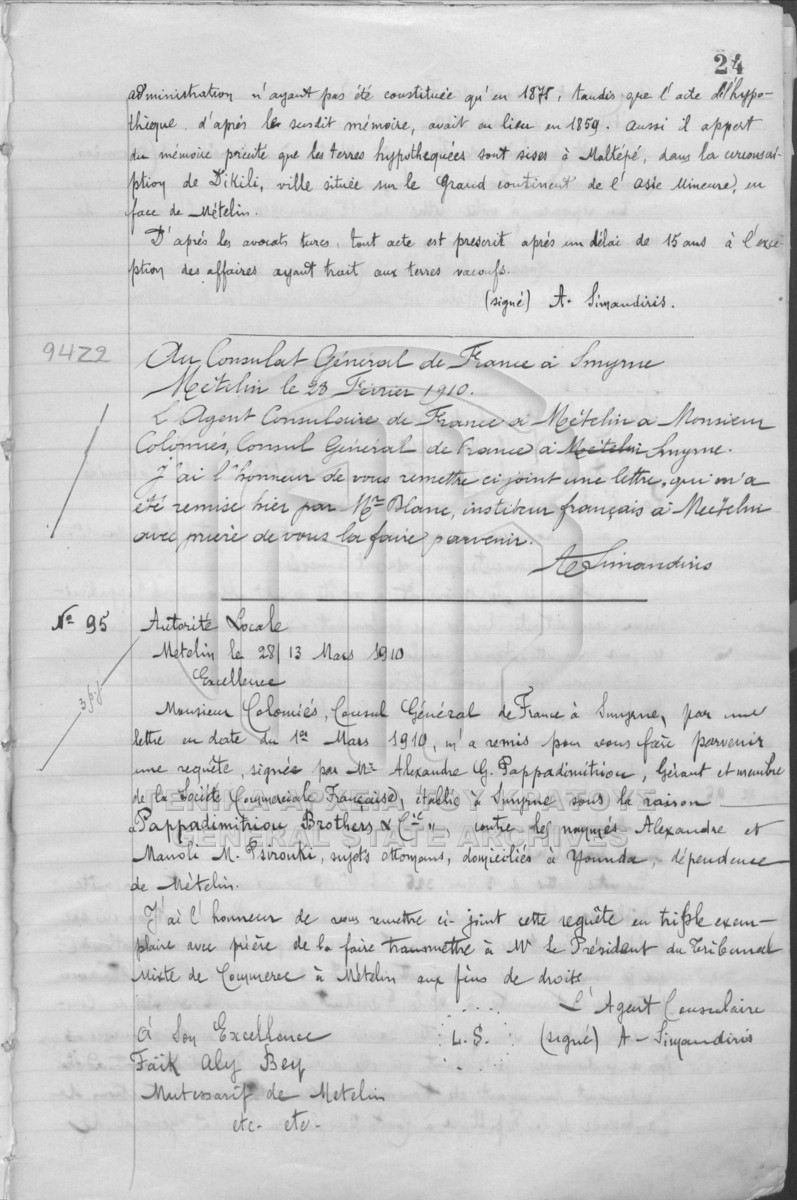 24
administration n'ayant pas été constituée qu'en 1878, tandis que l'acte d'hypo-
thèque d'après le susdit mémoire, avait eu lieu en 1859. Aussi il appert
du mémoire précité que les terres hypothequées sont sises à Maltépé, dans la circonscri-
ption de Dikili, ville située sur le Grand continent de l'Asie Mineure, en
face de Mételin.
D'après les avocats turcs, tout acte est prescrit après un délai de 15 ans à l'exce-
ption des affaires ayant trait aux terres vacoufs.
(signé) A. Simandiris.
94
Au Consulat Général de France à Smyrne
Mételin le 28 Février 1910.
L'Agent Consulaire de France à Mételin à Monsieur
Colomiés, Consul Général de France à Mételin Smyrne.
J'ai l'honneur de vous remettre ci joint une lettre, qui m'a
été remise hier par Mr Blanc, instituteur français à Mételin
avec prière de vous la faire parvenir.
A Simandiris
No 95
Autorité Locale
Metelin le 28/13 Mars 1910
Excellence
3 p.j
Monsieur Colomiés, Consul Général de France à Smyrne, par une
lettre en date du 1er Mars 1910, m'a remis pour vous faire parvenir
une requête, signée par Mr Alexandre G. Pappadimitriou, Gérant et membre
de la Société Commerciale Française, établie à Smyrne sous la raison
"Pappadimitriou Brothers & Cie", contre les nommés Alexandre et
Manoli M. sujets ottomans, domiciliés à Younda, dépendence
de Mételin.
J'ai l'honneur de vous remettre ci-joint cette requête en triple exem-
plaire avec prière de la faire transmettre à Mr le Président du Tribunal
Mixte de Commerce à Mételin aux fins de droite
L'Agent Consulaire
À Son Excellence L.S. (signé) A- Simandiris
Faïk Aly Bey
Mutessarif de Metelin
etc- etc-
ΓΕΝΙΚΑ ΑΡΧΕΙΑ ΤΟΥ ΚΡΑΤΟΥΣ
GENERAL STATE ARCHIVES